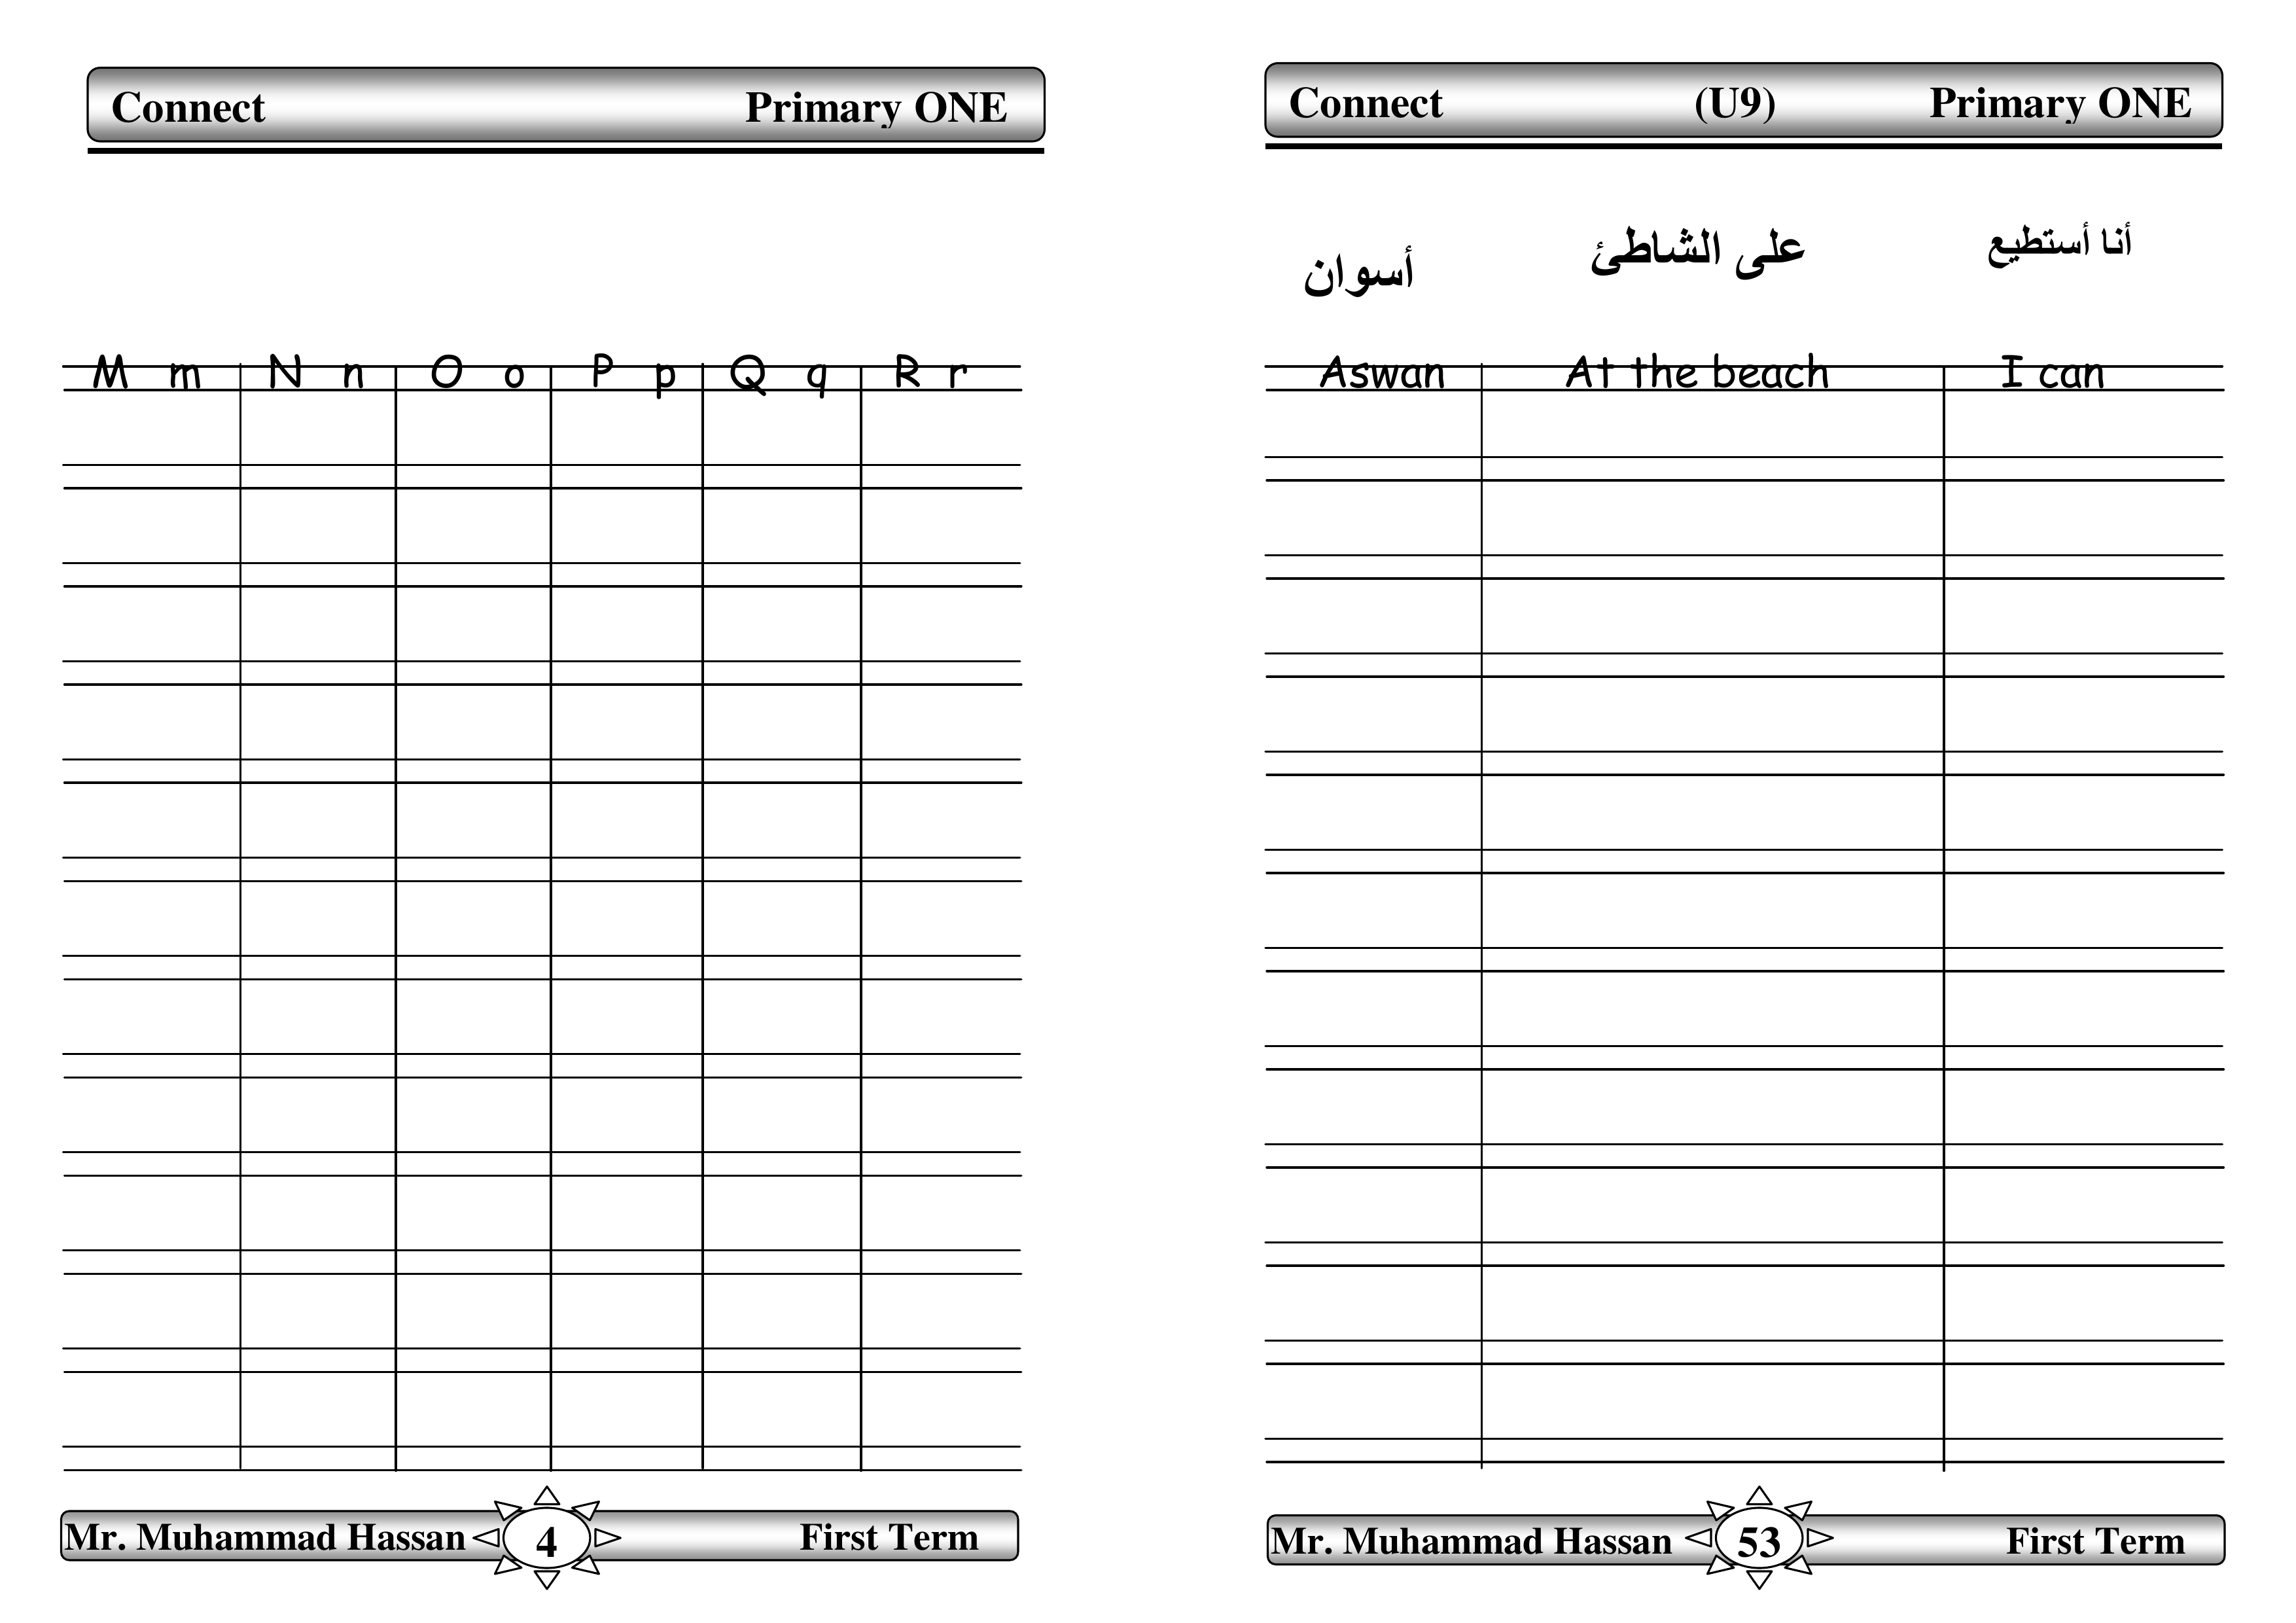 Connect Primary ONE
M m N n O o P p Q q R r
Mr. Muhammad Hassan 4 First Term
Connect (U9) Primary ONE
أنا أستطيع على الشاطئ أسوان
Aswan At the beach I can
Mr. Muhammad Hassan 53 First Term